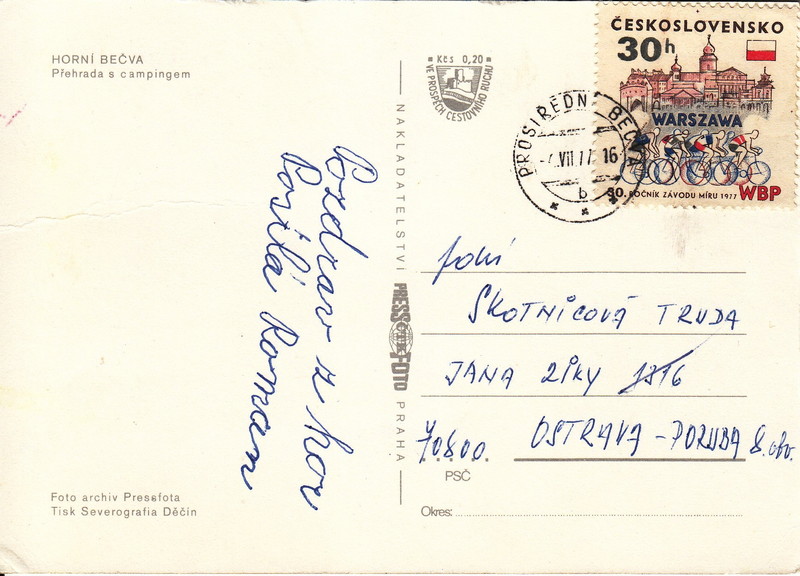 HORNÍ BEČVA
Přehrada s campingem
Kčs 0,20
VE PROSPĚCH CESTOVNÍHO RUCHU
ČESKOSLOVENSKO
30h
WARSZAWA
30. ROČNÍK ZÁVODU MÍRU 1977 WBP
PROSTŘEDNÍ BEČVA
VII 77 16
b
Pozdrav z hor
Posílá Roman
NAKLADATELSTVÍ
PRESSFOTO
ČTK
PRAHA
SKOTNICOVÁ TRUDA
JANA ZIKY
70800 OSTRAVA-PORUBA 8. obv.
PSČ
Okres:
Foto archiv Pressfota
Tisk Severografia Děčín